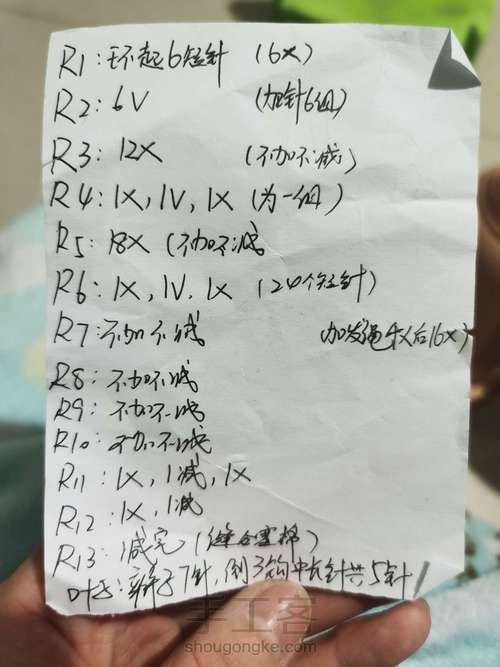 R1:环起6短针 (6X)
R2:6V (加针6组)
R3:12X (不加不减)
R4:1X,1V,1X (为一组)
R5:18X (不加不减
R6:1X,1V.1X (24个短针)
R7:不加不减 加发绳 后16X)
R8:不加不减
R9:不加不减
R10:不加不减
R11:1X,1减,1X
R12:1X,1减
R13:1减完 (缝合塞棉)
叶子:辫子7针,倒3钩中长针共5针
手工客
shougongke.com